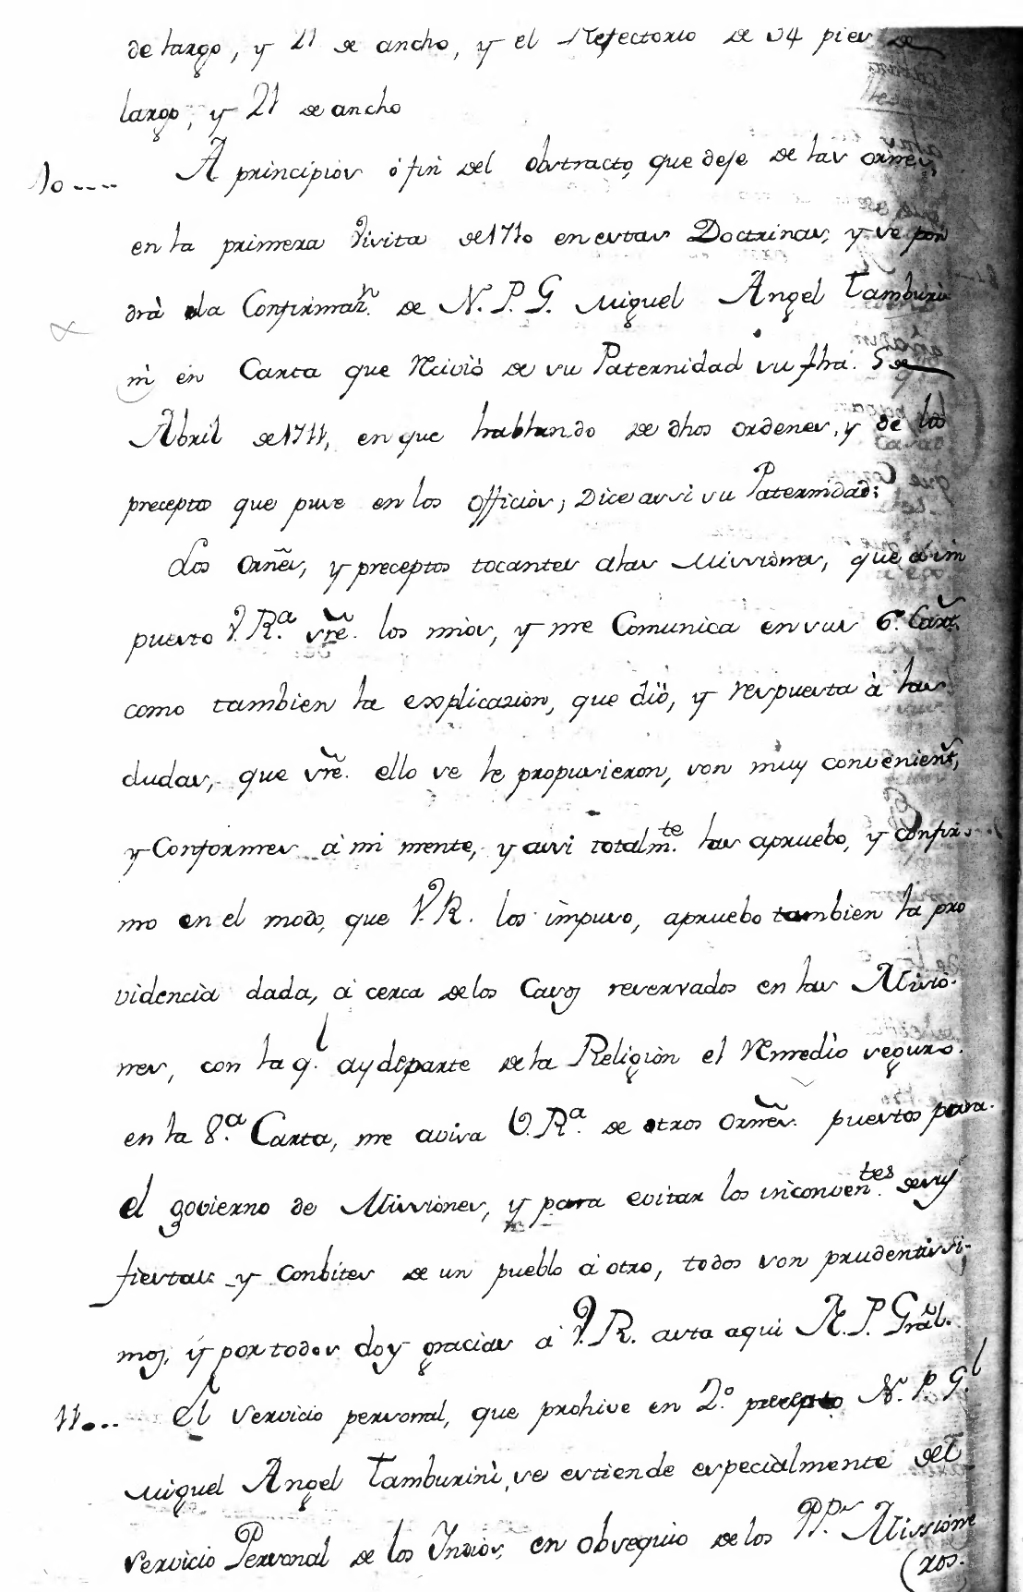 de largo, y 21 de ancho, y el Refectorio de 54 pies de
largo, y 21 de ancho
10---- A principios ó fin del obstracto, que dese de las orñes,
en la primera Visita de 1710 en estas Doctrinas, y se pon
drá la Confirmaz.n de N. P. G. Miguel Angel Tamburi
ni en Carta que Recivió de su Paternidad su fha. 5 de
Abril de 1711, en que hablando de dhos ordenes, y de los
preceptos que puse en los officios; Dice assi su Paternidad:
Los Orñes, y preceptos tocantes a las Missiones, que a im
puesto V. R.a sre. los mios, y me Comunica en sus 6.a Cart.s
como tambien la explicazion, que dió, y respuesta à las
dudas, que sre. ello se le propusieron, son muy convenient.s,
y Conformes à mi mente, y assi totalm.te las apruebo, y confir-
mo en el modo, que V. R. los impuso, apruebo tambien la pro
videncia dada, à cerca de los Casos reservados en las Missio-
nes, con la q.l ay de parte de la Religion el Remedio seguro.
en la 8.a Carta, me avisa V. R.a de otros Orñes. puestos para
el govierno de Missiones, y para evitar los inconven.tes de sus
fiestas y Conbites de un pueblo à otro, todos son prudentissi-
mos, y por todos doy gracias à V. R. asta aqui N. P. Grãl.
11--- El servicio personal, que prohive en 2.o precepto N. P. G.l
Miguel Angel Tamburini, se estiende especialmente del
servicio Personal de los Indios, en obsequio de los PP.s Missione
(ros.